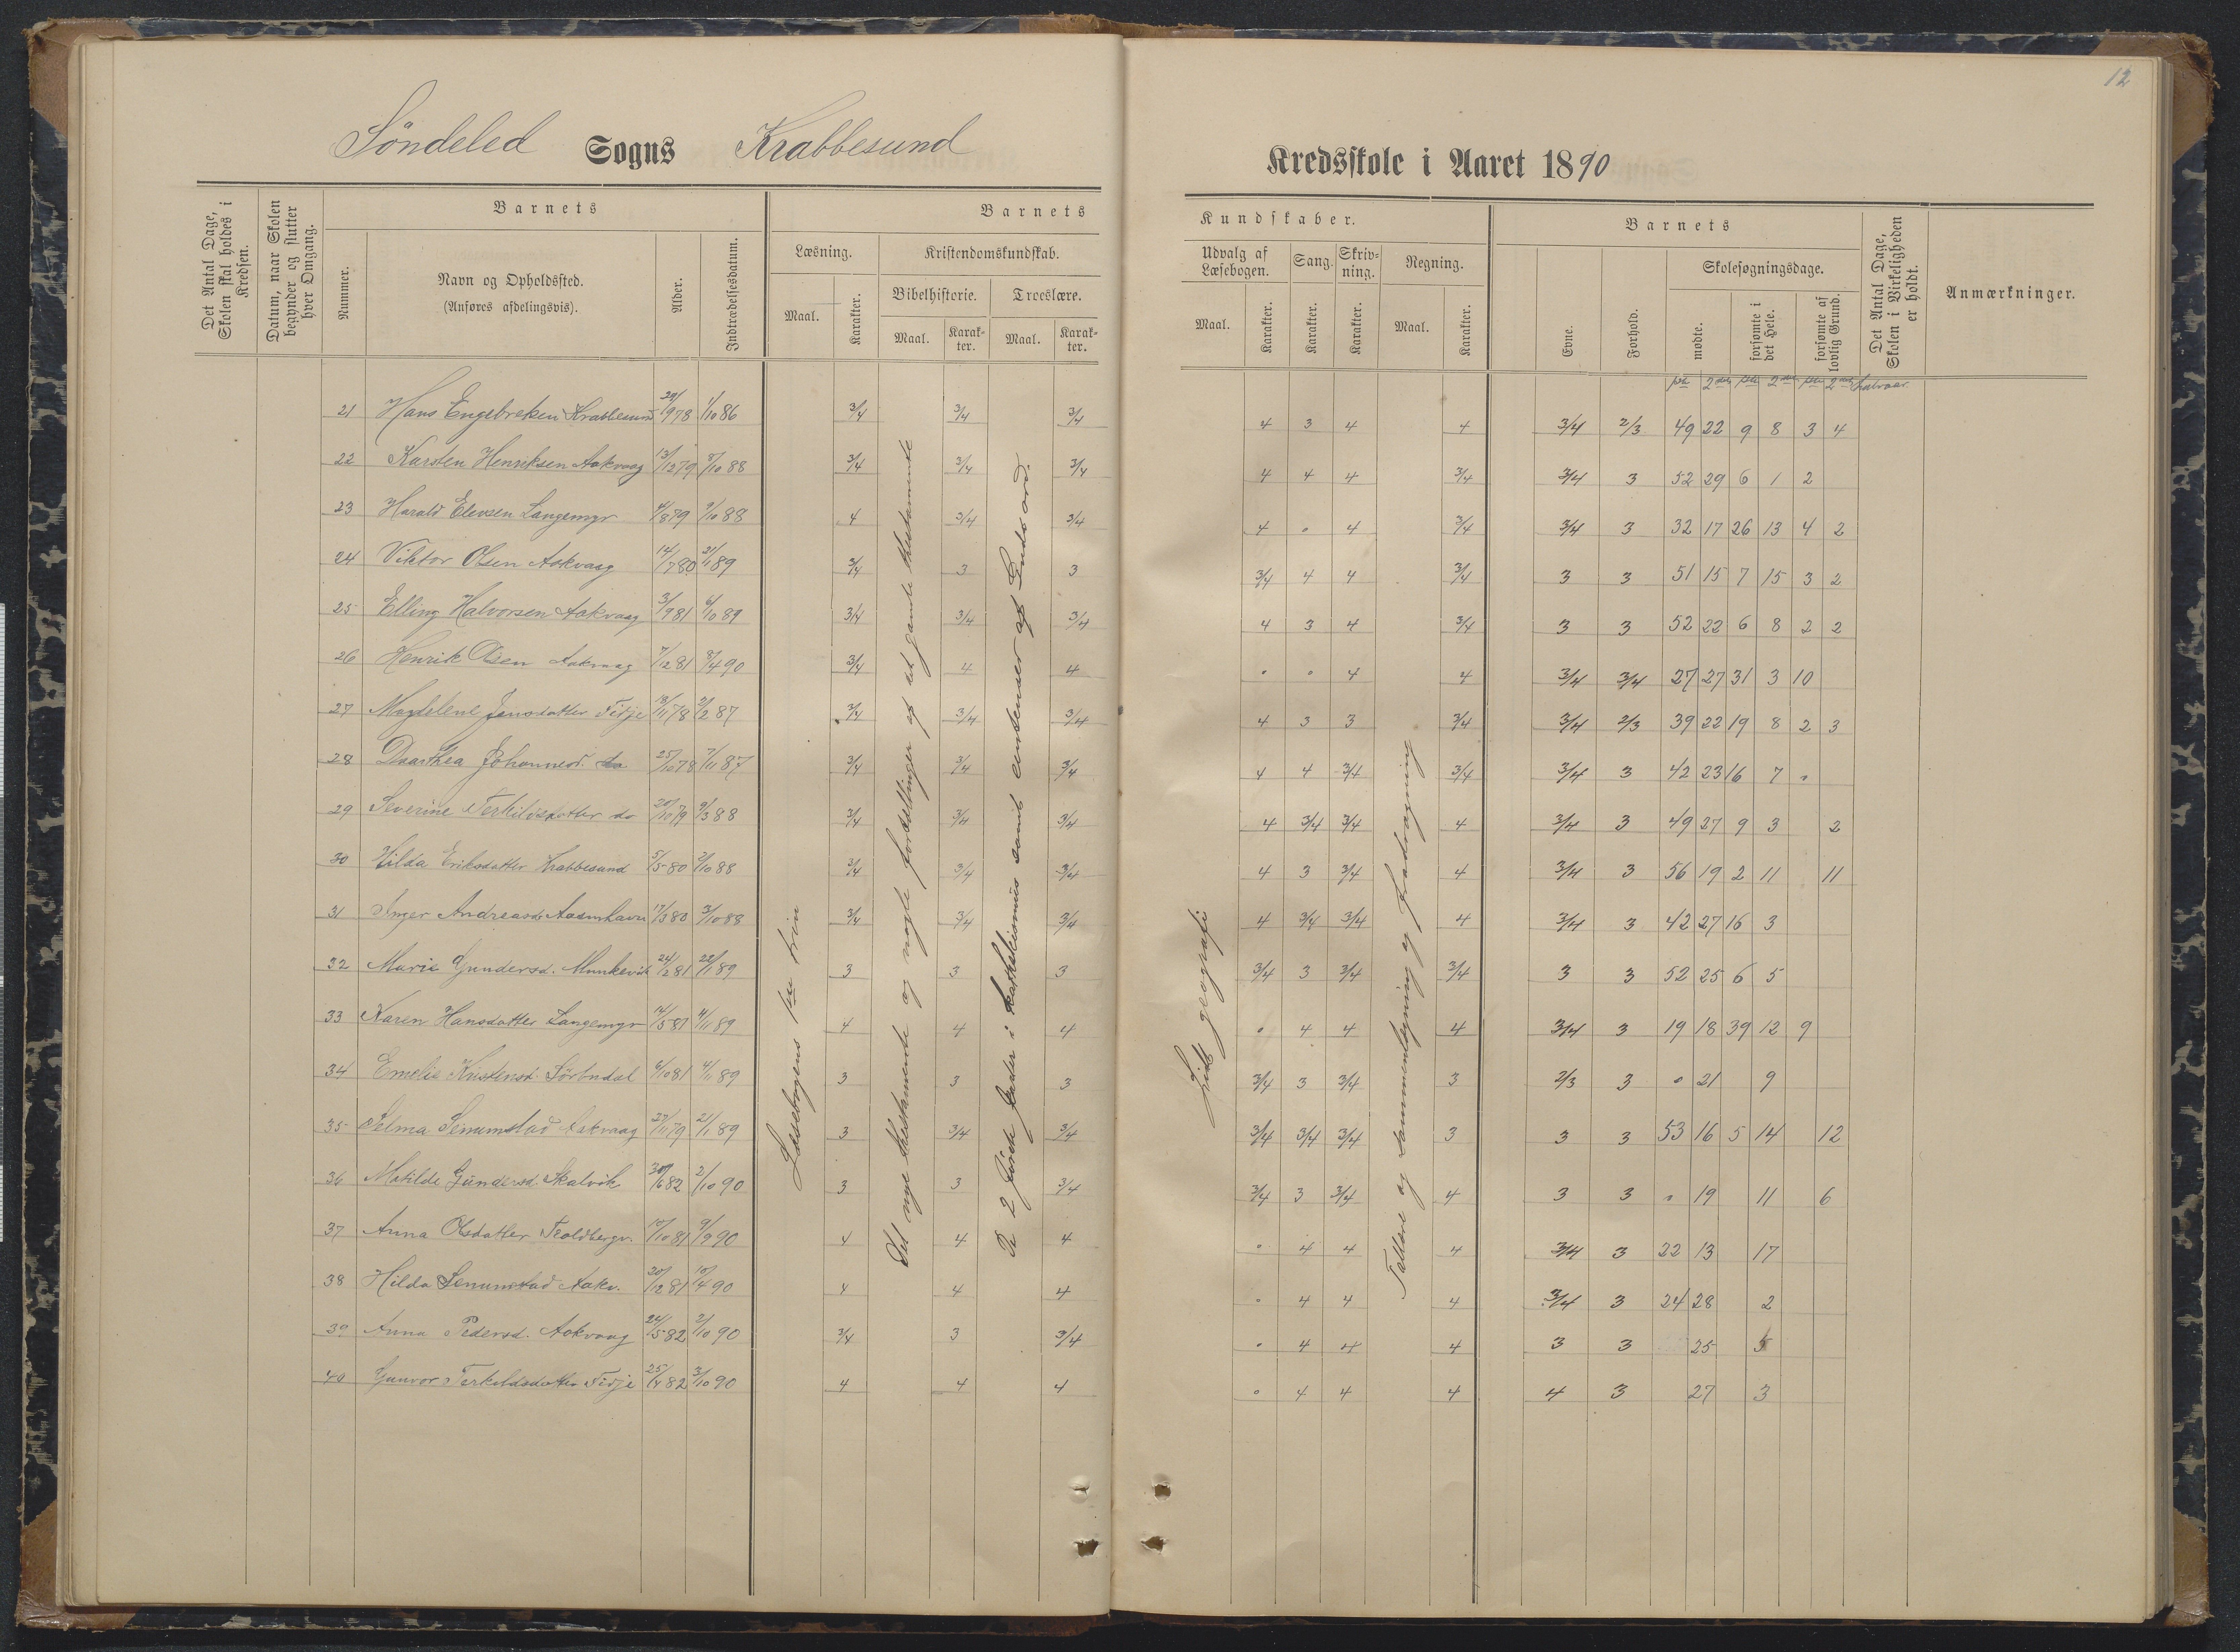 12
Söndeled Sogns Krabbesund Kredsskole i Aaret 1890
Det Antal Dage, Skolen skal holdes i Kredsen.
Datum, naar Skolen begynder og slutter hver Omgang.
Barnets
Nummer.
Navn og Opholdssted.
(Anføres afdelingsvis).
Alder.
Indtrædelsesdatum.
Barnets Kundskaber.
Læsning.
Maal. Karakter.
Kristendomskundskab.
Bibelhistorie. Troeslære.
Maal. Karakter. Maal. Karakter.
Udvalg af Læsebogen. Sang. Skrivning. Regning.
Maal. Karakter. Karakter. Karakter. Maal. Karakter.
Barnets
Evne. Forhold.
Skolesøgningsdage.
mødte. forsømte i det Hele. forsømte af lovlig Grund.
Det Antal Dage, Skolen i Virkeligheden er holdt.
Anmærkninger.
1ste 2den 1ste 2den 1ste 2den halvaar
Læsebogens 1ste trin
Det nye thestamente og nogle fortællinger af det gamle thestamente
De 2 første parter i kathekismus samt af Guds ord.
Lidt geografi
Tællere og sammenlægning og fradragning
21 Hans Engebretsen Krabbesund 29/9 78 1/10 86 3/4 3/4 3/4 4 3 4 4 3/4 2/3 49 22 9 8 3 4
22 Karsten Henriksen Aakvaag 13/12 79 8/10 88 3/4 3/4 3/4 4 4 4 3/4 3/4 3 52 29 6 1 2
23 Harald Elevsen Langemyr 4/8 79 9/10 88 4 3/4 3/4 4 " 4 3/4 3/4 3 32 17 26 13 4 2
24 Viktor Olsen Aakvaag 14/7 80 21/1 89 3/4 3 3 3/4 4 4 3/4 3 3 51 15 7 15 3 2
25 Elling Halvorsen Aakvaag 3/9 81 6/10 89 3/4 3/4 3/4 4 3 4 3/4 3 3 52 22 6 8 2 2
26 Henrik Olsen Aakvaag 7/12 81 8/4 90 3/4 4 4 " " 4 4 3/4 3/4 27 27 31 3 10
27 Magdelene Jensdatter Fidje 13/11 78 2/2 87 3/4 3/4 3/4 4 3 3 3/4 3/4 2/3 39 22 19 8 2 3
28 Daarthea Johannesd. do 25/10 78 7/11 87 3/4 3/4 3/4 4 4 3/4 3/4 3/4 3 42 23 16 7 "
29 Severine Terkildsdatter do 20/10 79 9/3 88 3/4 3/4 3/4 4 3/4 3/4 4 3/4 3 49 27 9 3 2
30 Hilda Eriksdatter Krabbesund 5/5 80 2/10 88 3/4 3/4 3/4 4 3 3/4 4 3/4 3 56 19 2 11 11
31 Inger Andreasd. Aasmhavn 17/3 80 3/10 88 3/4 3/4 3/4 4 3/4 3/4 4 3/4 3 42 27 16 3
32 Marie Gundersd. Munkevik 24/2 81 22/1 89 3 3 3 3/4 3 3/4 3/4 3 3 52 25 6 5
33 Karen Hansdatter Langemyr 14/5 81 4/11 89 4 4 4 " 4 4 4 3/4 3 19 18 39 12 9
34 Emelie Kristensd. 6/10 81 4/11 89 3 3 3 3/4 3 3/4 3 2/3 3 " 21 9
35 Selma Senumstad Aakvaag 27/11 79 21/1 89 3 3/4 3/4 3/4 3/4 3/4 3 3 3 53 16 5 14 12
36 Matilde Gundersd. Skalvik 30/6 82 2/10 90 3 3 3/4 3/4 3 3/4 4 3 3 " 19 11 6
37 Anna Olsdatter Troldbergv. 10/10 81 9/9 90 4 4 4 " 4 4 4 3/4 3 22 13 17
38 Hilda Senumstad Aakv. 20/12 81 10/4 90 4 4 4 " 4 4 4 3/4 3 24 28 2
39 Anna Pedersd. Aakvaag 24/5 82 2/10 90 3/4 3 3/4 " 4 4 4 3 3 25 5
40 Gunvor Terkildsdatter Fidje 25/4 82 3/10 90 4 4 4 " 4 4 4 4 3 27 3